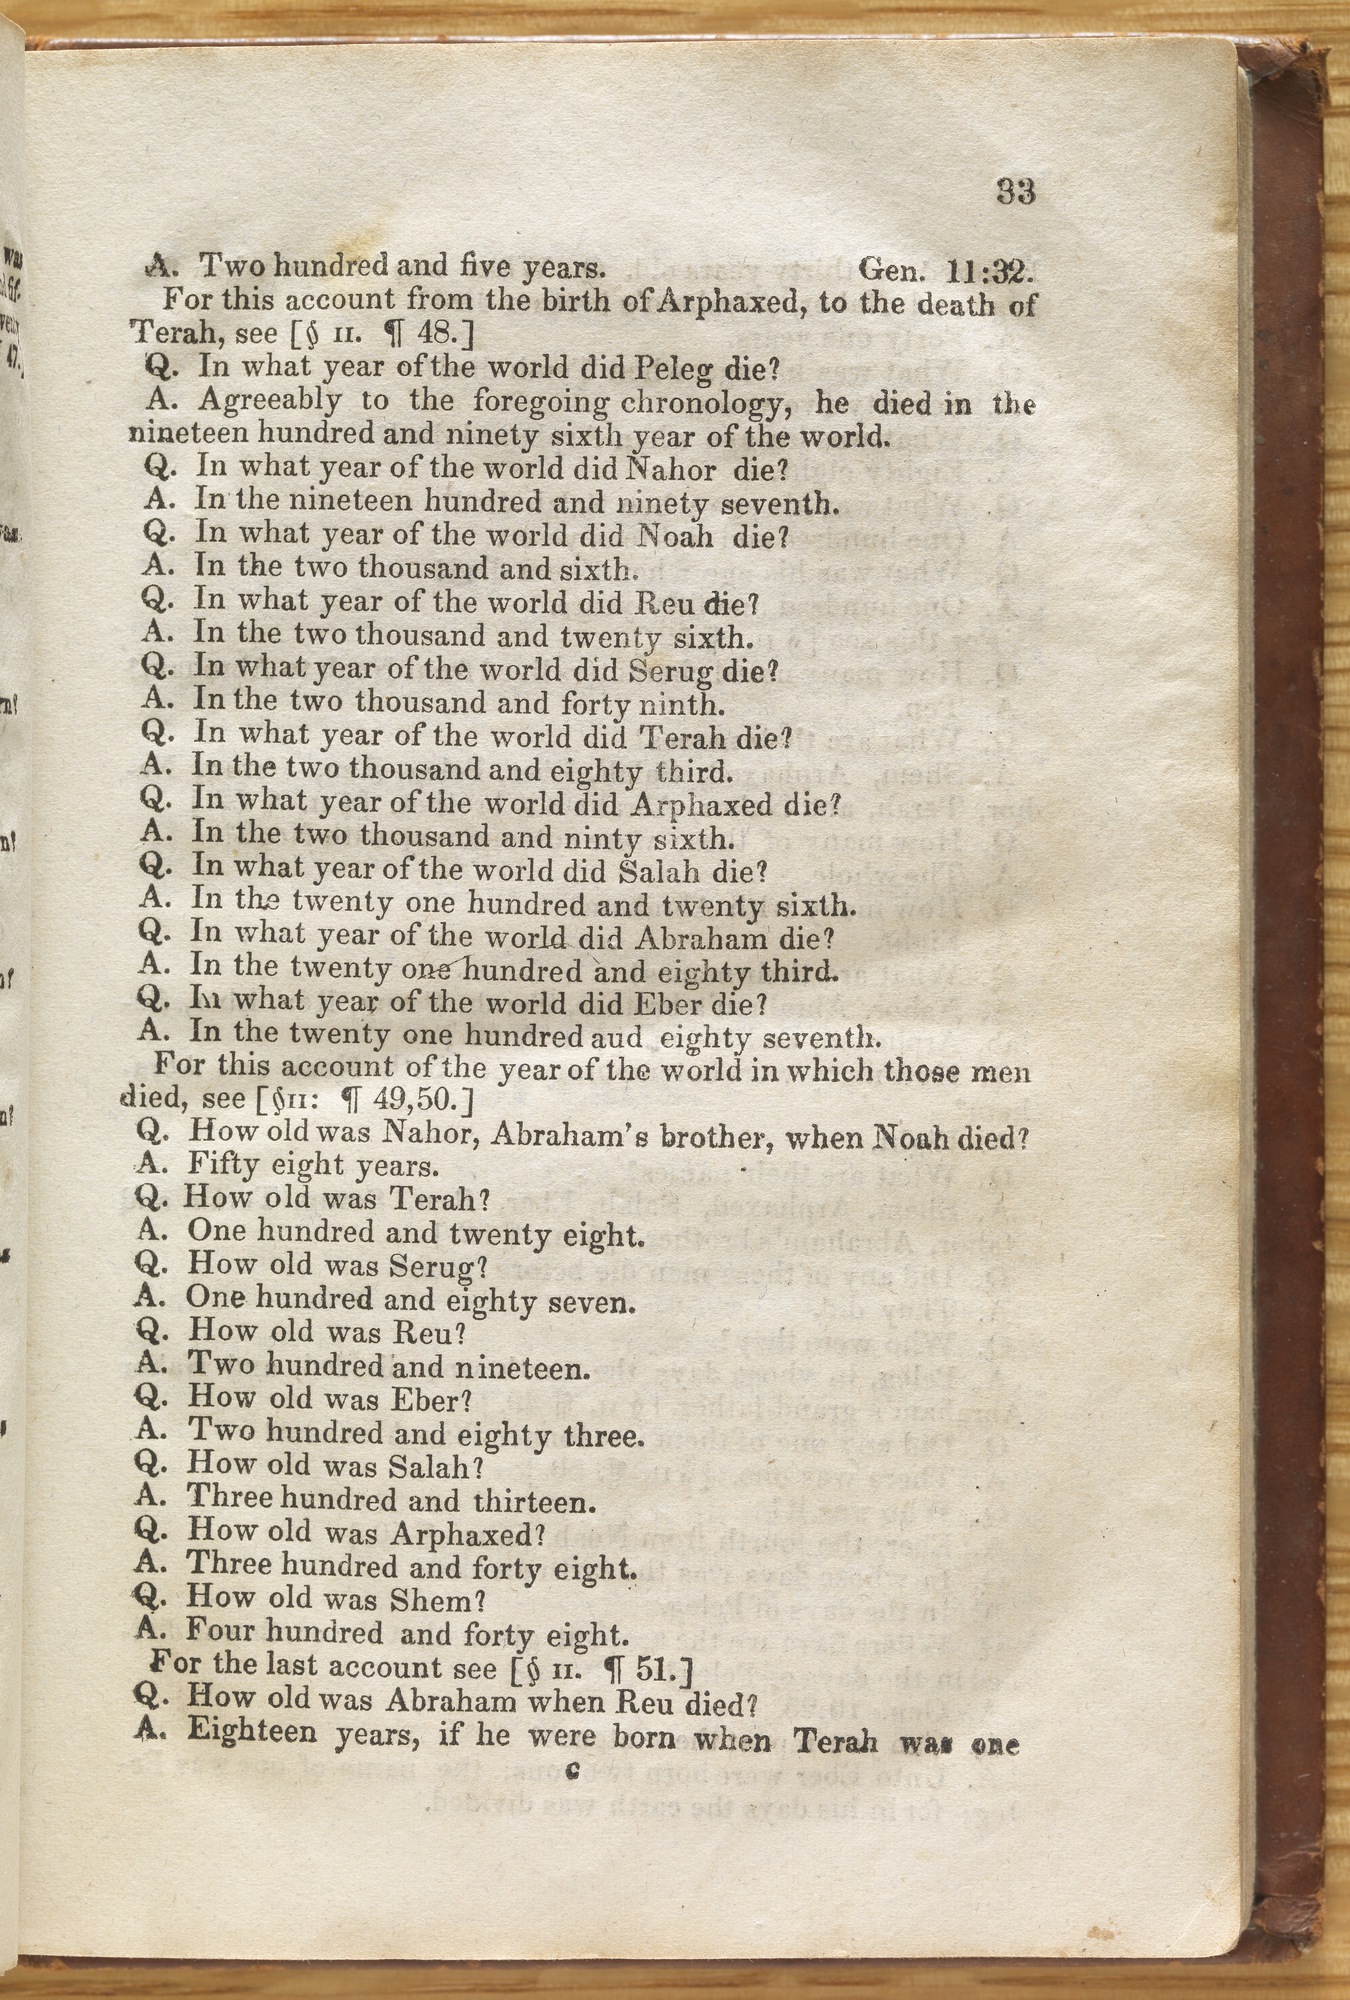 33
A. Two hundred and five years. Gen. 11:32.
For this account from the birth of Arphaxed, to the death of
Terah, see [§ II. ¶ 48.]
Q. In what year of the world did Peleg die?
A. Agreeably to the foregoing chronology, he died in the
nineteen hundred and ninety sixth year of the world.
Q. In what year of the world did Nahor die?
A. In the nineteen hundred and ninety seventh.
Q. In what year of the world did Noah die?
A. In the two thousand and sixth.
Q. In what year of the world did Reu die?
A. In the two thousand and twenty sixth.
Q. In what year of the world did Serug die?
A. In the two thousand and forty ninth.
Q. In what year of the world did Terah die?
A. In the two thousand and eighty third.
Q. In what year of the world did Arphaxed die?
A. In the two thousand and ninty sixth.
Q. In what year of the world did Salah die?
A. In the twenty one hundred and twenty sixth.
Q. In what year of the world did Abraham die?
A. In the twenty one hundred and eighty third.
Q. In what year of the world did Eber die?
A. In the twenty one hundred aud eighty seventh.
For this account of the year of the world in which those men
died, see [§II: ¶ 49,50.]
Q. How old was Nahor, Abraham's brother, when Noah died?
A. Fifty eight years.
Q. How old was Terah?
A. One hundred and twenty eight.
Q. How old was Serug?
A. One hundred and eighty seven.
Q. How old was Reu?
A. Two hundred and nineteen.
Q. How old was Eber?
A. Two hundred and eighty three.
Q. How old was Salah?
A. Three hundred and thirteen.
Q. How old was Arphaxed?
A. Three hundred and forty eight.
Q. How old was Shem?
A. Four hundred and forty eight.
For the last account see [§ II. ¶ 51.]
Q. How old was Abraham when Reu died?
A. Eighteen years, if he were born when Terah was one
C